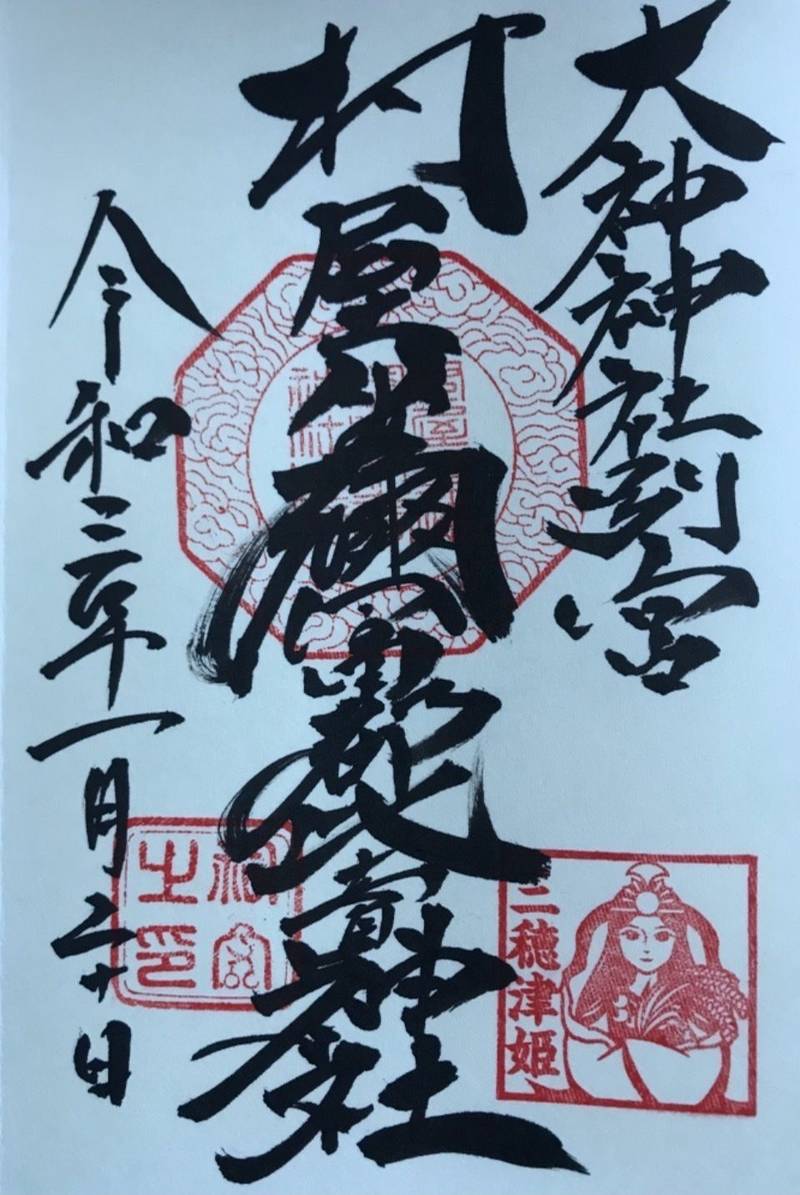 大神神社別宮
村屋坐彌冨都比賣神社
令和三年一月二十日
三穂津姫